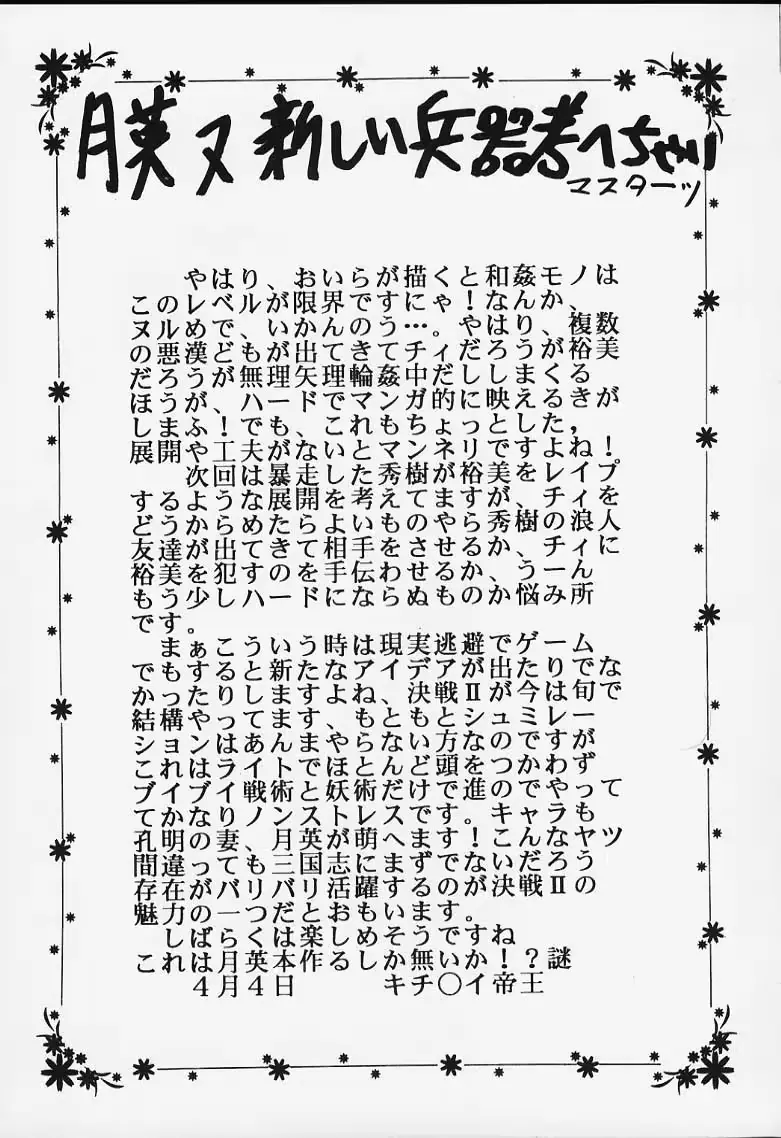 月英ヌ 新しい兵器考へちゃい
マスターッ
やはり、おいらが描くと和姦モノは
このレベルが限界ですにゃ!なんか、
ヌルめで、いかんのう…。やはり、複数
の悪漢どもが出てきてチィだろうが裕美
だろうが無理矢理輪姦中だししまくる
ほうが、ハードでマンガ的に映えるきが
しまふ!でも、これもちょっとした,
展開や工夫がないとマンネリですよね!
次回は暴走した秀樹が裕美をレイプ
するような展開を考えてますが、チィを
どうからめたらよいものやら秀樹の浪人
友達が出てきて相手をさせるか、チィに
裕美を犯すのを手伝わせるか、うーん
もう少しハードにならぬものか悩み所
です。
まぁこういう時は現実逃避でゲーム
でもすると新たなアイデアが出たりでな
かったりしますよね、決戦Ⅱが今は旬で
結構やってます、もともとシュミレー
ションはあんまやらない方なのですが
これはライトでほとんど頭をつかわず
ブイブイ戦術と妖術だけで進のでやって
てかなりノンストレスです。キャラも
孔明の妻、月英が萌へます!こんなヤツ
間違っても三国志にまずでないだろう
存在がバリバリ活躍するのが決戦Ⅱの
魅力の一つだとおもいます。
しばらくは楽しめそうですね
これは月英本作るしか無いか!?謎
4月4日 キチ〇イ帝王